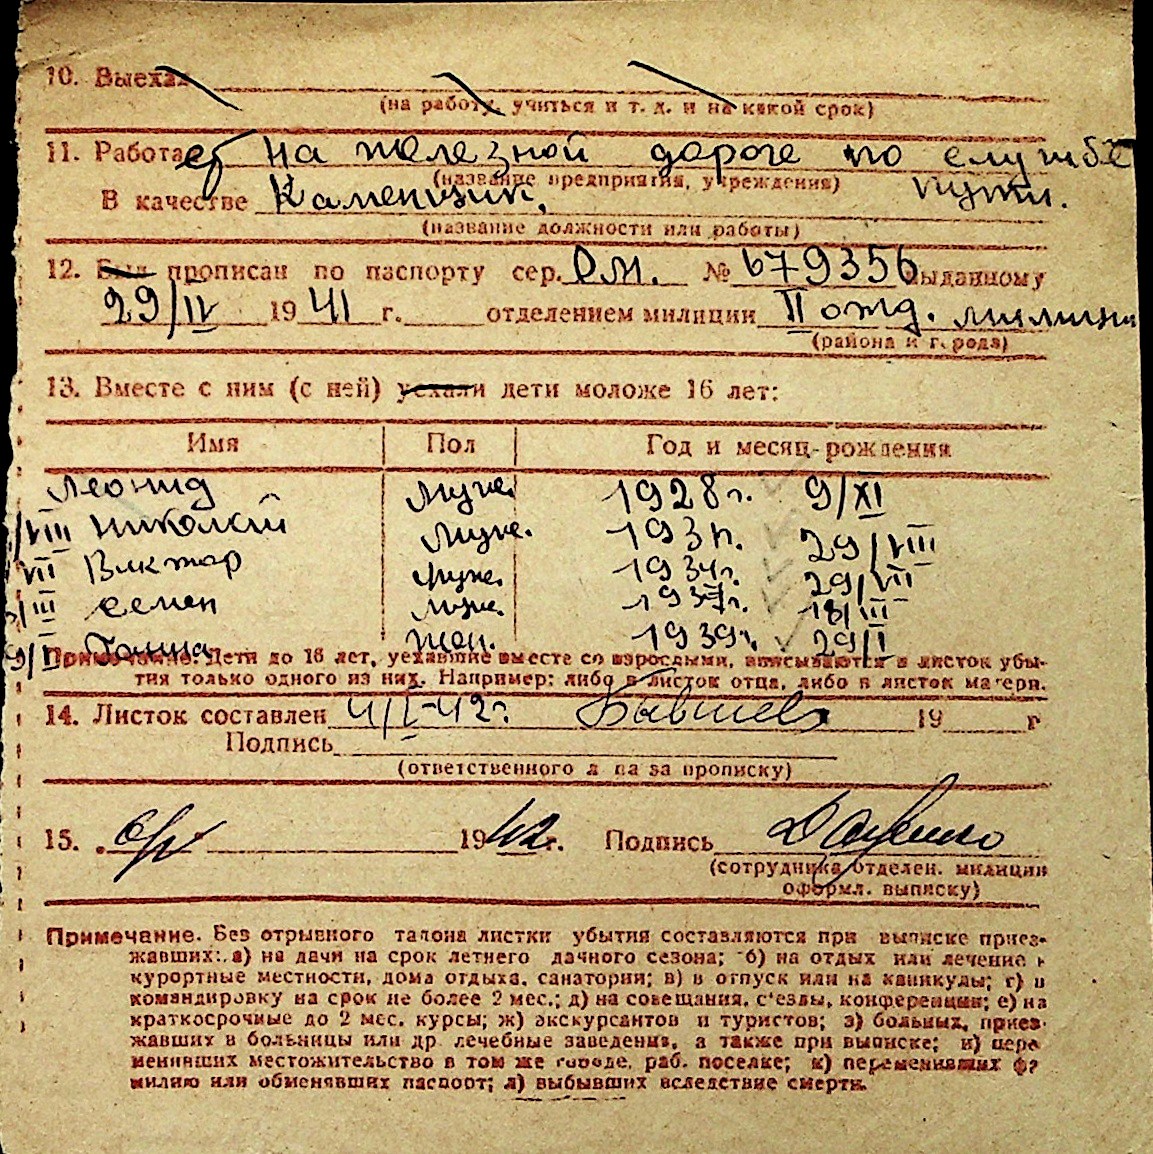 10. Выехал
(на работу, учиться и т. д. и на какой срок)
11. Работает на железной дороге по службе
(название предприятия, учреждения) пути.
В качестве Каменщик,
(название должности или работы)
12. Был прописан по паспорту сер. ОМ. № 679356 выданному
29/IV 1941 г. отделением милиции II ожд. милиции
(района и города)
13. Вместе с ним (с ней) уехали дети моложе 16 лет:
Имя Пол Год и месяц рождения
Леонид Муж. 1928 г. 9/XI
/VIII Николай Муж. 193 г. 29/VIII
VII Виктор Муж. 1934 г. 29/VII
/III Семен Муж. 1937 г. 18/III
9/I Галина Жен. 1939 г. 29/I
Примечание. Дети до 16 лет, уехавшие вместе со взрослыми, вписываются в листок убы-
тия только одного из них. Например: либо в листок отца, либо в листок матери.
14. Листок составлен 4/I-42 г. 19 г
Подпись
(ответственного лица за прописку)
15. 1942 г. Подпись
(сотрудника отделен. милиции
оформл. выписку)
Примечание. Без отрывного талона листки убытия составляются при выписке приез-
жавших: а) на дачи на срок летнего дачного сезона; б) на отдых или лечение в
курортные местности, дома отдыха, санатории; в) в отпуск или на каникулы; г) в
командировку на срок не более 2 мес.; д) на совещания, с'езды, конференции; е) на
краткосрочные до 2 мес. курсы; ж) экскурсантов и туристов; з) больных, приез-
жавших в больницы или др. лечебные заведения, а также при выписке; и) пере
менивших местожительство в том же городе, раб. поселке; к) переменивших фа
милию или обменявших паспорт; л) выбывших вследствие смерти.